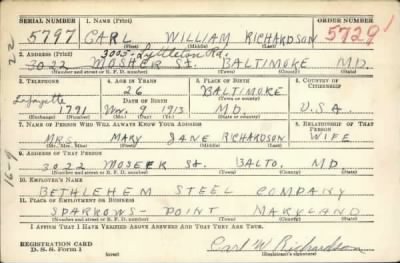 SERIAL NUMBER 1. NAME (Print) ORDER NUMBER
5797 CARL WILLIAM RICHARDSON 5729
(First) (Middle) (Last)
2. ADDRESS (Print) 3005 Lyttleton Rd.
3022 MOSHER St. BALTIMORE MD.
(Number and street or R. F. D. number) (Town) (County) (State)
3. TELEPHONE 4. AGE IN YEARS 5. PLACE OF BIRTH 6. COUNTRY OF CITIZENSHIP
Lafayette 26 BALTIMORE
DATE OF BIRTH (Town or county)
1791 9 1913 MD. U.S.A.
(Exchange) (Number) (Mo.) (Day) (Yr.) (State or country)
7. NAME OF PERSON WHO WILL ALWAYS KNOW YOUR ADDRESS 8. RELATIONSHIP OF THAT PERSON
MRS. MARY JANE RICHARDSON WIFE
(Mr., Mrs., Miss) (First) (Middle) (Last)
9. ADDRESS OF THAT PERSON
3022 MOSEER St. BALTO, MD.
(Number and street or R. F. D. number) (Town) (County) (State)
10. EMPLOYER'S NAME
BETHLEHEM STEEL COMPANY
11. PLACE OF EMPLOYMENT OR BUSINESS
SPARROWS- POINT MARYLAND
(Number and street or R. F. D. number) (Town) (County) (State)
I AFFIRM THAT I HAVE VERIFIED ABOVE ANSWERS AND THAT THEY ARE TRUE.
REGISTRATION CARD
D. S. S. Form 1 (over) Carl W Richardson
(Registrant's signature)